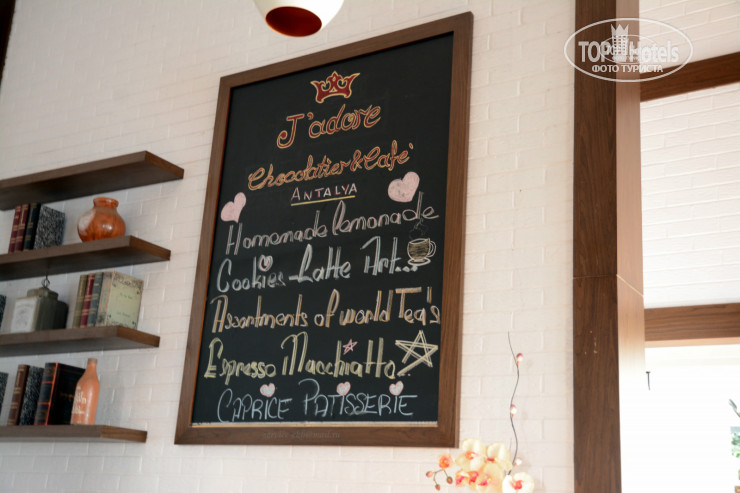 TOPHotels
ФОТО ТУРИСТА
J'adore
Chocolatier & Café
ANTALYA
Homemade lemonade
Cookies Latte Art...
Assortments of world Tea's
Espresso Macchiatto..
CAPRICE PATISSERIE